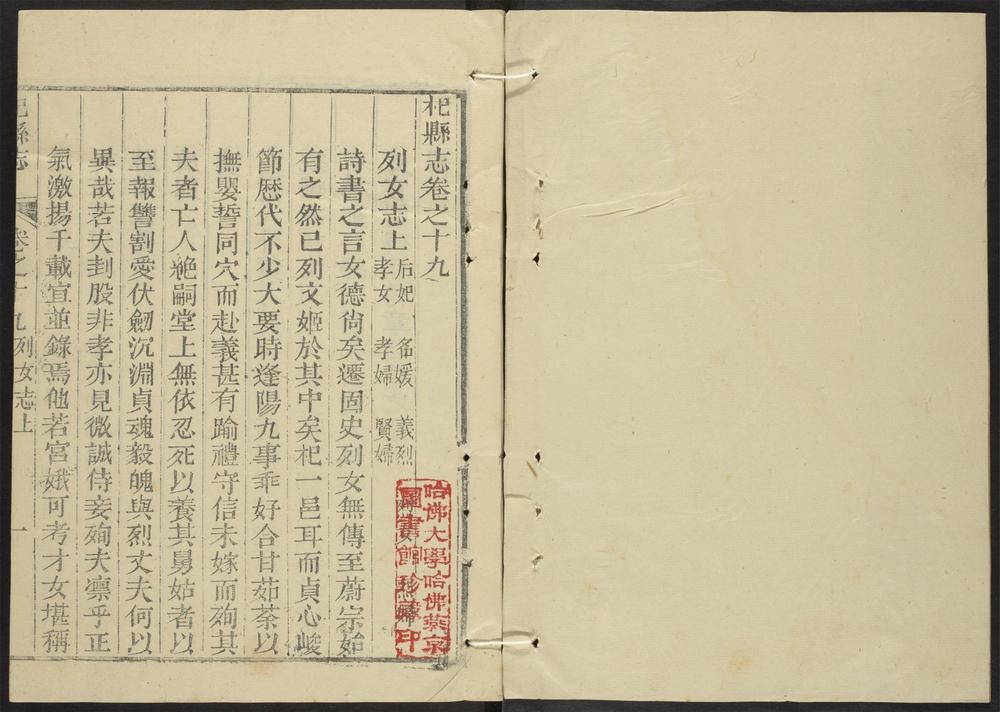 杞縣志卷之十九
列女志上 后妃 名媛 義烈
孝女 孝婦 賢婦
詩書之言女德尚矣遷固史列女無傳至蔚宗始
有之然已列文姬於其中矣杞一邑耳而貞心峻
節歷代不少大要時逢陽九事乖好合甘茹荼以
撫嬰誓同穴而赴義甚有踰禮守信未嫁而殉其
夫者亡人絶嗣堂上無依忍死以養其舅姑者以
至報讐割愛伏劒沉淵貞魂毅魄與烈丈夫何以
異哉若夫刲股非孝亦見微誠侍妾殉夫凛乎正
氣激揚千載宜並錄焉他若宮娥可考才女堪稱
杞縣志 卷之十九 列女志上 一
哈佛大學哈佛燕京
圖書館珍藏印